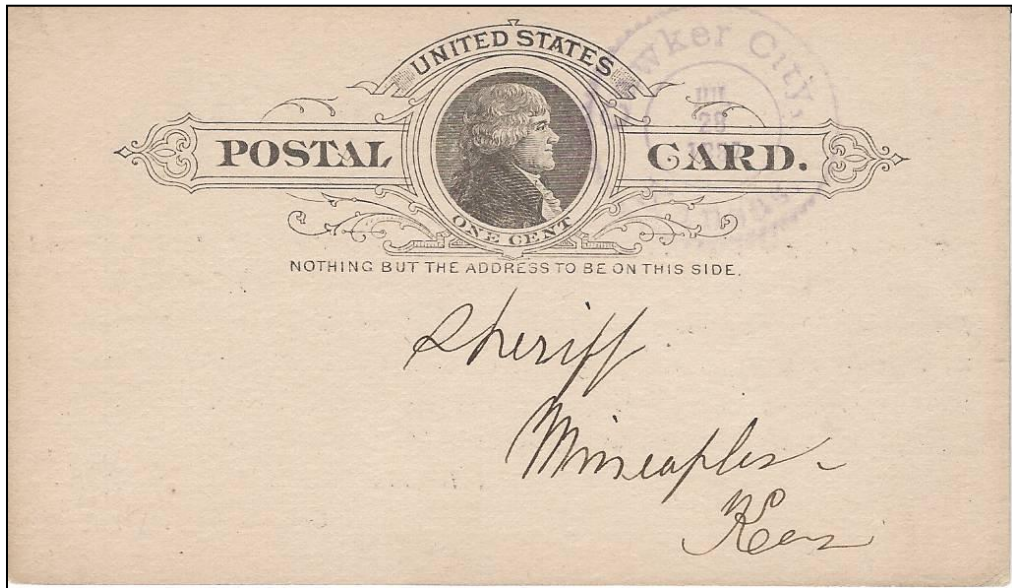 UNITED STATES
POSTAL CARD.
ONE CENT
NOTHING BUT THE ADDRESS TO BE ON THIS SIDE.
City
28
Sheriff
Minneaplis
Kan